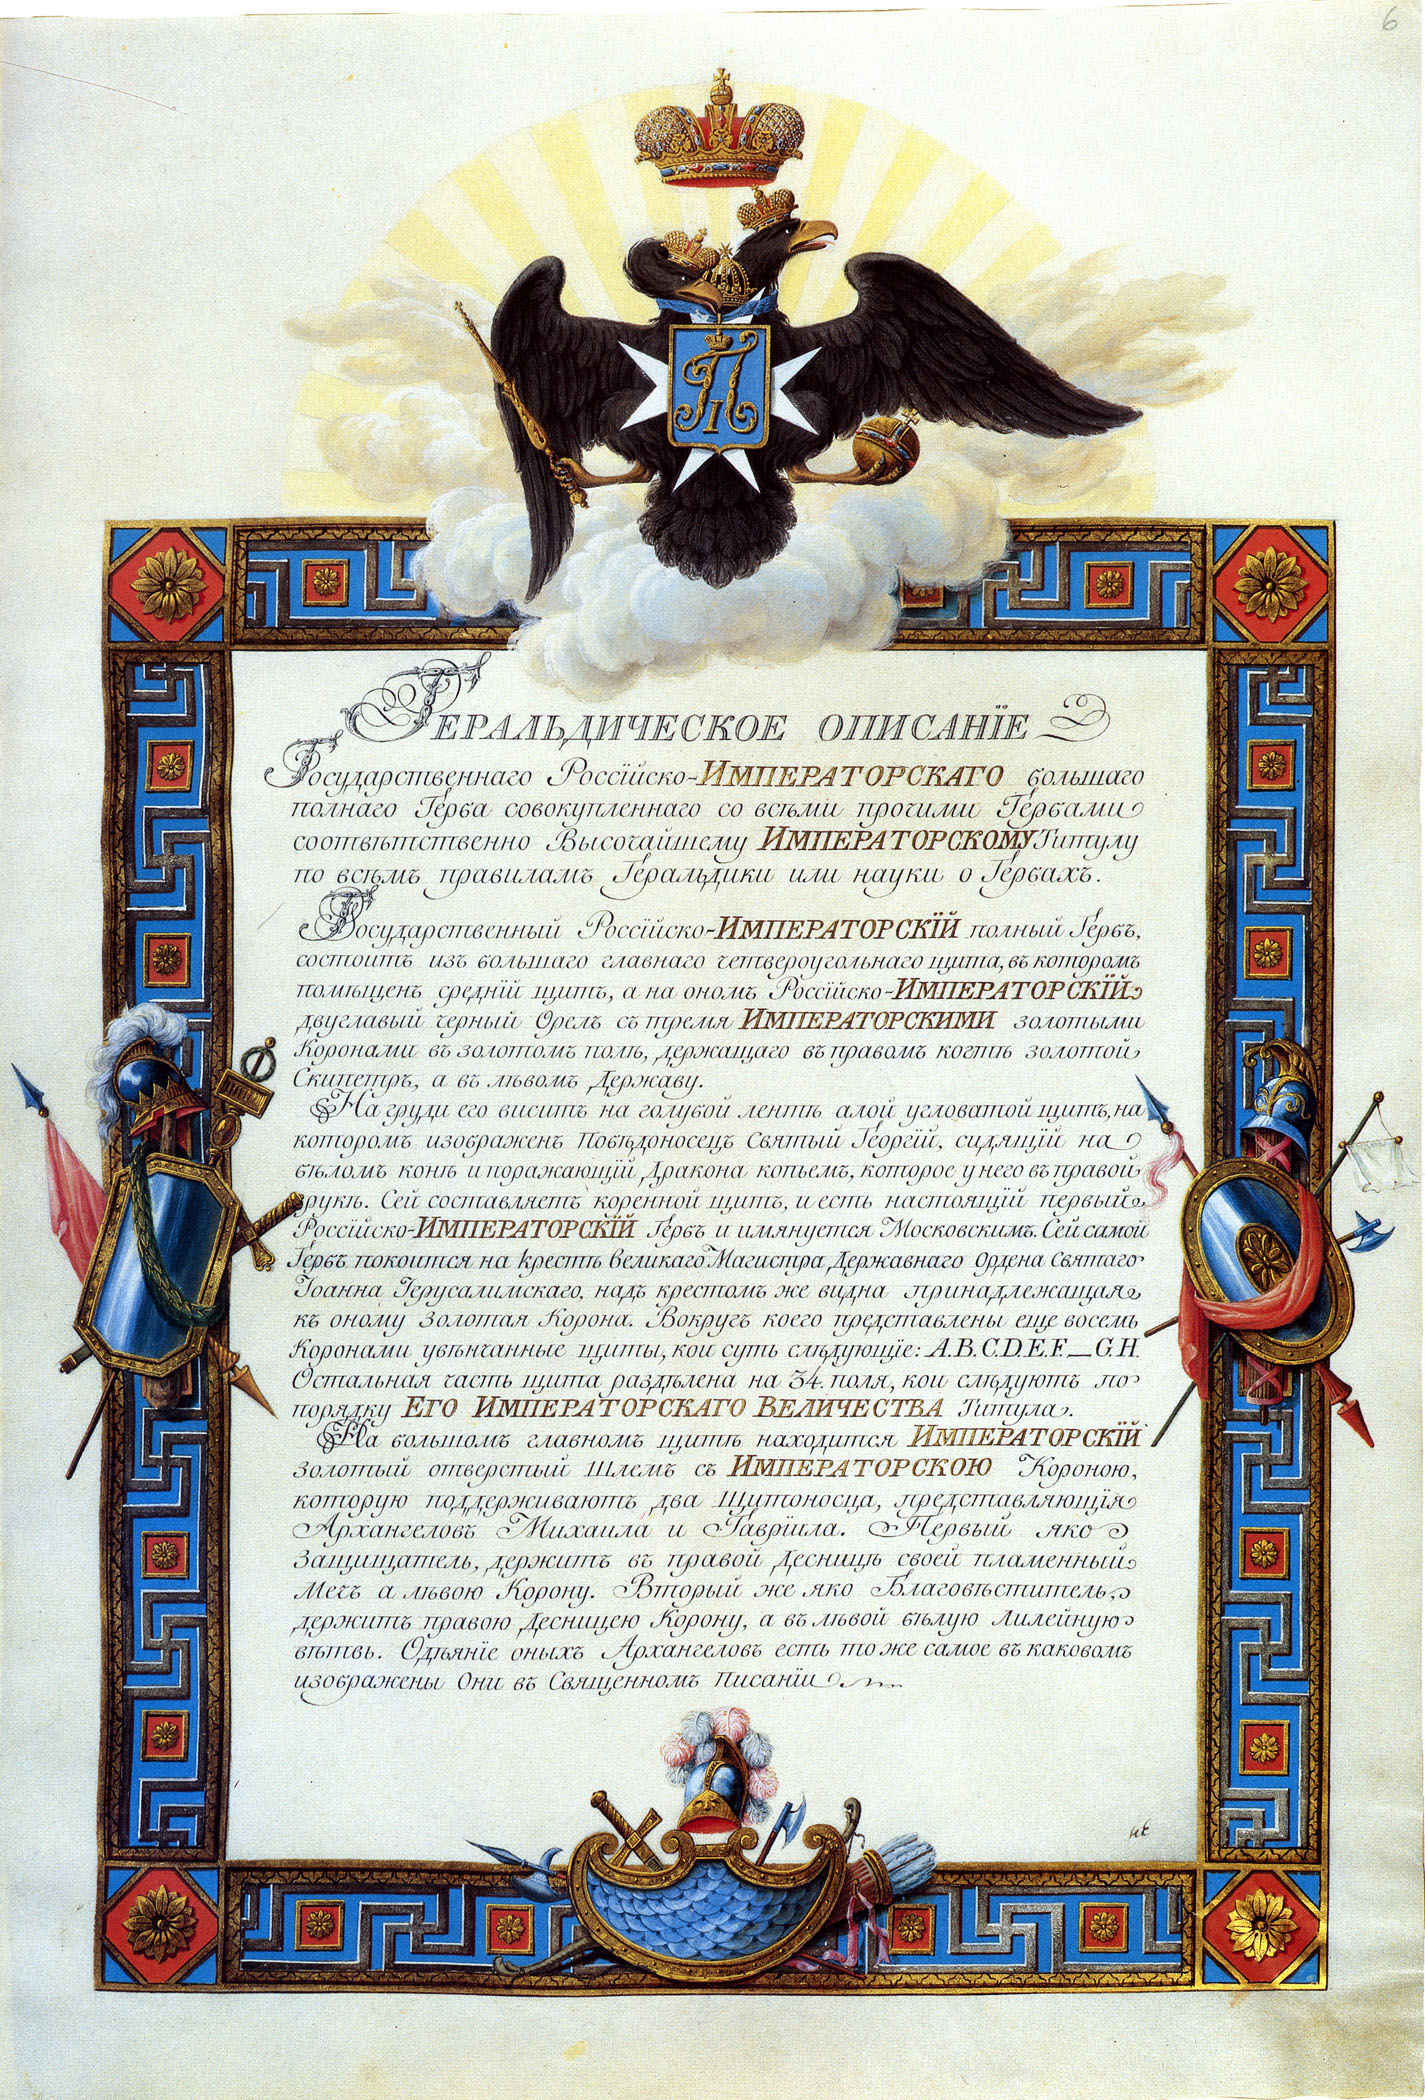 6
П I
ГЕРАЛЬДИЧЕСКОЕ ОПИСАНЇЕ
Государственнаго Россїйско-ИМПЕРАТОРСКАГО большаго
полнаго Герба совокупленнаго со всѣми прочими Гербами
соотвѣтственно Высочайшему ИМПЕРАТОРСКОМУ Титулу
по всѣмъ правиламъ Геральдики или науки о Гербахъ.
Государственный Россїйско-ИМПЕРАТОРСКЇЙ полный Гербъ,
состоитъ изъ большаго главнаго четвероугольнаго щита, въ которомъ
помѣщенъ среднїй щитъ, а на ономъ Россїйско-ИМПЕРАТОРСКЇЙ
двуглавый черный Орелъ съ тремя ИМПЕРАТОРСКИМИ золотыми
Коронами въ золотомъ полѣ, держащаго въ правомъ когтѣ золотой
Скипетръ, а въ лѣвомъ Державу.
На груди его виситъ на голубой лентѣ алой угловатой щитъ, на
которомъ изображенъ Повѣдоносецъ Святый Георгїй, сидящїй на
бѣломъ конѣ и поражающїй Дракона копьемъ, которое у него въ правой
рукѣ. Сей составляетъ коренной щитъ, и есть настоящїй первый
Россїйско-ИМПЕРАТОРСКЇЙ Гербъ и имянуется Московскимъ. Сей самой
Гербъ покоится на крестѣ Великаго Магистра Державнаго Ордена Святаго
Іоанна Іерусалимскаго, надъ крестомъ же видна принадлежащая
къ оному Золотая Корона. Вокругъ коего представлены еще восемь
Коронами увѣнчанные щиты, кои суть слѣдующїе: A.B.C.D.E.F._G.H.
Остальная часть щита раздѣлена на 34. поля, кои слѣдуютъ по
порядку ЕГО ИМПЕРАТОРСКАГО ВЕЛИЧЕСТВА Титула.
На большомъ главномъ щитѣ находится ИМПЕРАТОРСКЇЙ
золотый отверстый Шлемъ съ ИМПЕРАТОРСКОЮ Короною,
которую поддерживаютъ два Щитоносца, представляющїя
Архангеловъ Михаила и Гаврїила. Первый яко
защищатель, держитъ въ правой Десницѣ своей пламенный
Мечъ а лѣвою Корону. Вторый же яко Благовѣститель,
держитъ правою Десницею Корону, а въ лѣвой бѣлую Лилейную
вѣтвь. Одѣянїе оныхъ Архангеловъ есть то же самое въ каковомъ
изображены Они въ Священномъ Писанїи